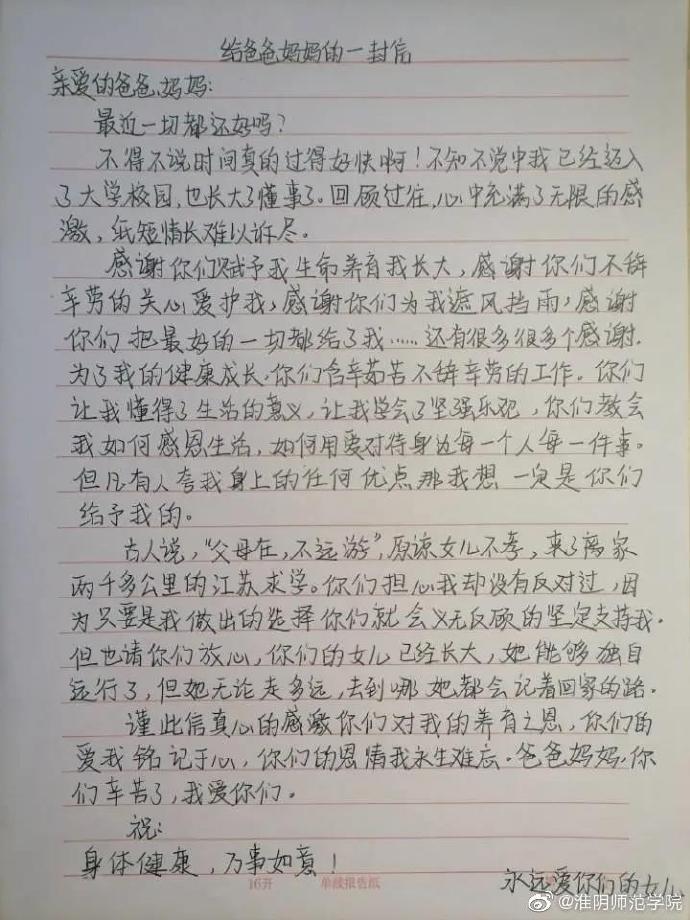 给爸爸妈妈的一封信
亲爱的爸爸、妈妈:
最近一切都还好吗?
不得不说时间真的过得好快啊!不知不觉中我已经迈入
了大学校园,也长大了懂事了。回顾过往,心中充满了无限的感
激,纸短情长难以诉尽。
感谢你们赋予我生命养育我长大,感谢你们不辞
辛劳的关心爱护我,感谢你们为我遮风挡雨,感谢
你们把最好的一切都给了我……还有很多很多个感谢.
为了我的健康成长.你们含辛茹苦不辞辛劳的工作。你们
让我懂得了生活的意义,让我学会了坚强乐观,你们教会
我如何感恩生活,如何用爱对待身边每一个人每一件事。
但凡有人夸我身上的任何优点那我想一定是你们
给予我的。
古人说,“父母在,不远游”,原谅女儿不孝,来了离家
两千多公里的江苏求学。你们担心我却没有反对过,因
为只要是我做出的选择你们就会义无反顾的坚定支持我.
但也请你们放心,你们的女儿已经长大,她能够独自
远行了,但她无论走多远,去到哪她都会记着回家的路.
谨此信真心的感激你们对我的养育之恩,你们的
爱我铭记于心,你们的恩情我永生难忘.爸爸妈妈.你
们辛苦了,我爱你们。
祝:
身体健康,万事如意!
永远爱你们的女儿
16开 单线报告纸
@淮阴师范学院